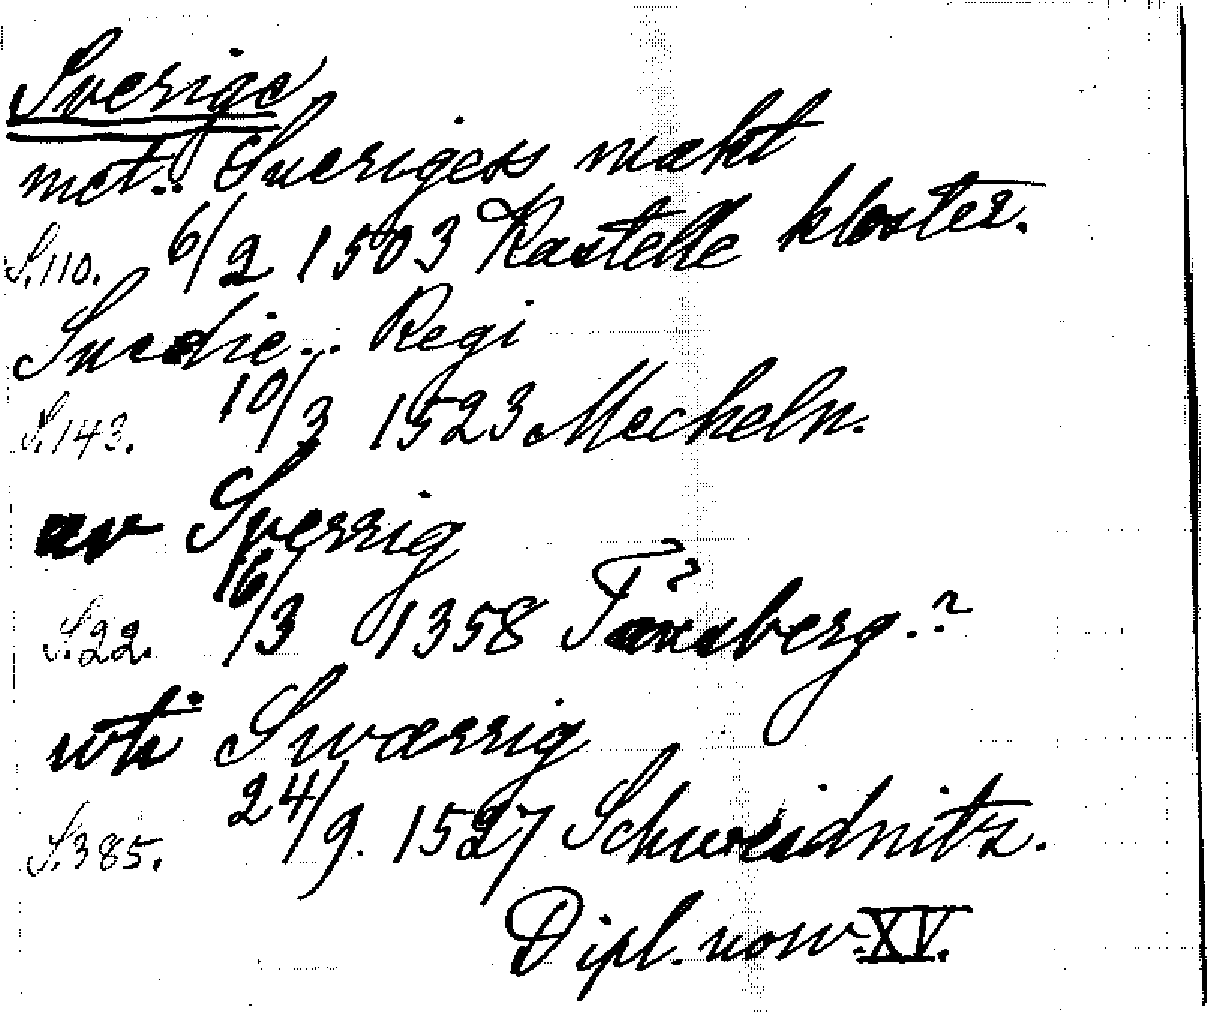 Sverige
mot.. Sverigess makt
S.110. 6/2 1503 Kastelle kloster.
Suedie... Regi
S.143. 10/3 1523 Mecheln.
av Sverrig
S.22. 16/3 1358 Tønsberg.?
wti Swærrig
S.385. 24/9. 1527 Schweidnitz.
Dipl. norv. XV.